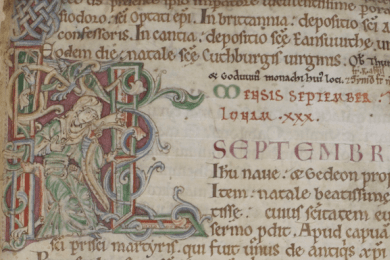 siodoro. sci Optati epi. In brittannia. depositio sci a
confessoris. In cantia. depositio sce Eansuuithe.
Eodem die. natale sce Cuthburgis uirginis.
& Goduini monachi hui loci.
MENSIS SEPTEMBER
LUNAM .XXX.
SEPTEMBR
Ihu naue. & Gedeon prop
Item. natale beatissime
tisse. cuius scitatem ex
sermo pdit. Apud capua
sci prisci martyris. qui fuit unus de antiqs xpi